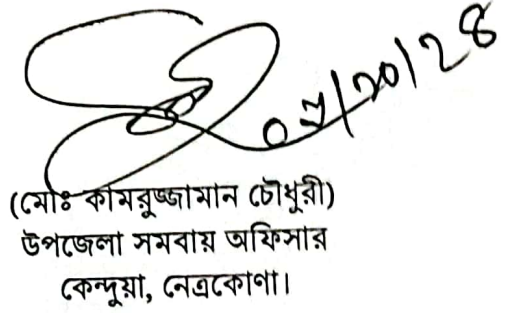 ০৭/১০/২৪
(মোঃ কামরুজ্জামান চৌধুরী)
উপজেলা সমবায় অফিসার
কেন্দুয়া, নেত্রকোণা।